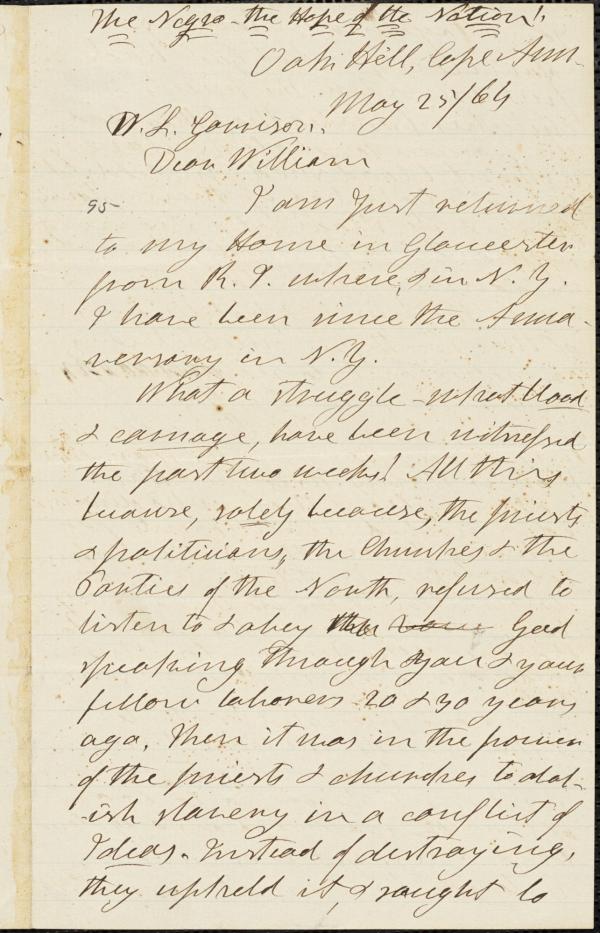 The Negro - the Hope of the Nation!
Oak Hill, Cape Ann -
May 25/64
W. L. Garrison.
Dear William
95- I am just returned
to my Home in Gloucester
from R. I. where, & in N. Y.
I have been since the Anni-
versary in N. Y.
What a struggle - what blood
& carnage, have been witnessed
the past two weeks! All this
because, solely because, the priests
& politicians, the Churches & the
Parties of the North, refused to
listen to & obey the God
speaking through you & your
fellow laborers 20 & 30 years
ago. Then it was in the power
of the priests & churches to abol-
-ish slavery in a conflict of
Ideas. Instead of destroying,
they upheld it, & sought to